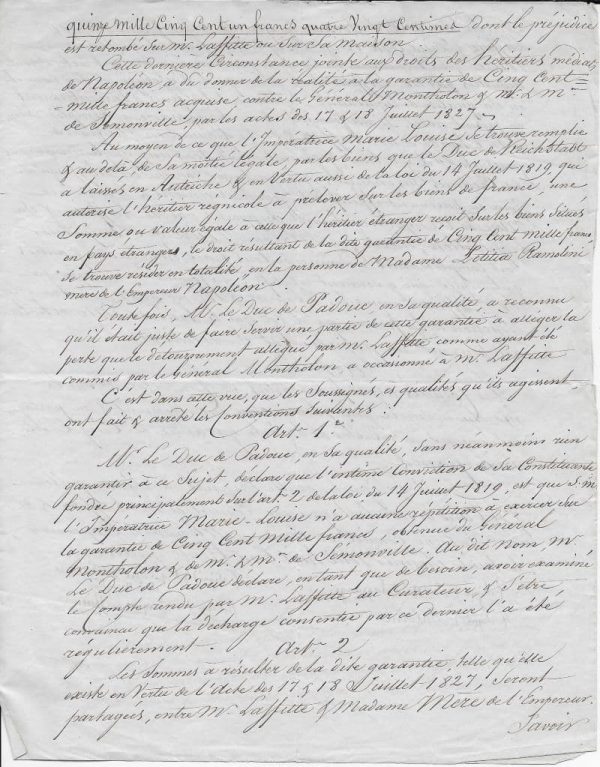 quinze mille Cinq Cent un francs quatre Vingt Centimes dont le préjudice
est retombé Sur mr. Laffitte ou Sur Sa maison
Cette dernière Circonstance jointe aux droits des héritiers médiats
de Napoléon a du donner de la réalité à la garantie de Cinq Cent
mille francs acquise, contre le Général Montholon & mr. & me.
de Sémonville, par les actes des 17 & 18 Juillet 1827.
Au moyen de ce que l'Impératrice Marie Louise Se trouve remplie
& au delà, de Sa moitié légale, par les biens que le Duc de Reichstadt
a laissés en Autriche & en Vertu aussi de la loi du 14 Juillet 1819 qui
autorise l'héritier regnicole à prélever Sur les biens de france, une
Somme ou valeur égale à celle que l'héritier étranger reçoit Sur les biens Situés
en pays étrangers, le droit résultant de la dite garantie de Cinq Cent mille francs
Se trouve résider en totalité, en la personne de Madame Letitia Ramolini
mère de l'Empereur Napoléon.
Toutefois, Mr. Le Duc de Padoue, en Sa qualité, a reconnu
qu'il était juste de faire Servir une partie de cette garantie à alléger la
perte que le détournement allégué par mr. Laffitte comme ayant été
commis par le Général Montholon, a occasionné à mr. Laffitte
C'est dans cette vue, que les Soussignés, ès qualités qu'ils agissent
ont fait & arrêté les Conventions Suivantes :
Art. 1er
Mr. Le Duc de Padoue, en Sa qualité, Sans néanmoins rien
garantir à ce Sujet, déclare que l'intime Conviction de Sa Constituante
fondée principalement Sur l'art. 2 de la loi du 14 Juillet 1819, est que S. m.
l'Impératrice Marie-Louise n'a aucune répétition à exercer Sur
la garantie de Cinq Cent Mille francs, obtenue du Général
Montholon & de m. & me. de Sémonville. Au dit Nom, M.
Le Duc de Padoue déclare, en tant que de besoin, avoir examiné
le Compte rendu par Mr. Laffitte au Curateur, & S'être
convaincu que la décharge consentie par ce dernier l'a été
régulièrement.
Art. 2
Les Sommes à résulter de la dite garantie, telle qu'elle
existe en Vertu de l'Acte des 17 & 18 Juillet 1827, Seront
partagées, entre Mr. Laffitte & Madame Mère de l'Empereur.
Savoir